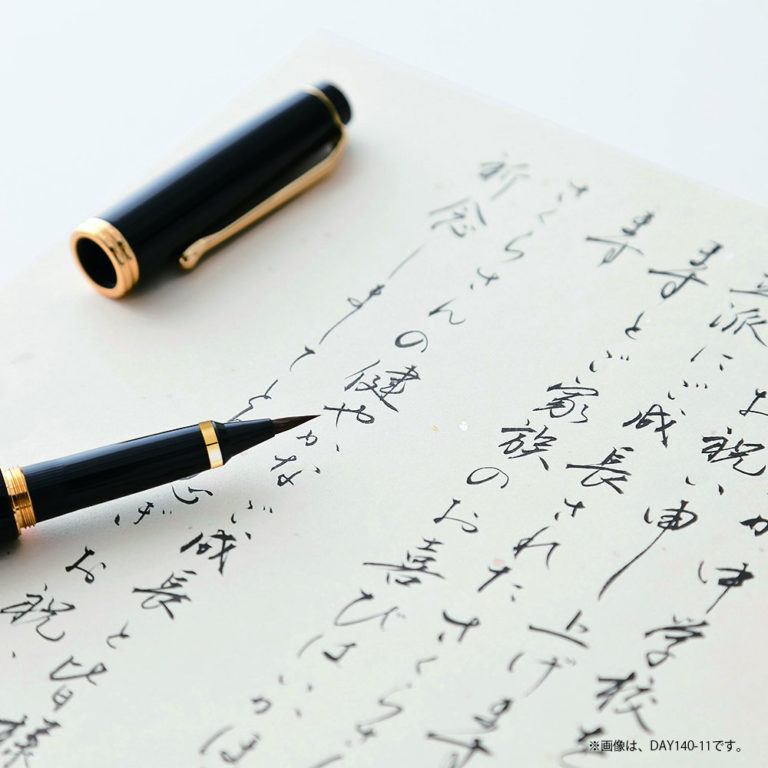 が中学校を
お祝い申し上げます
立派にご成長されたさくら
ますとご家族のお喜びはいかほ
ます
さくらさんの健やかなご成長と皆様
祈念しまして
お祝
※画像は、DAY140-11です。